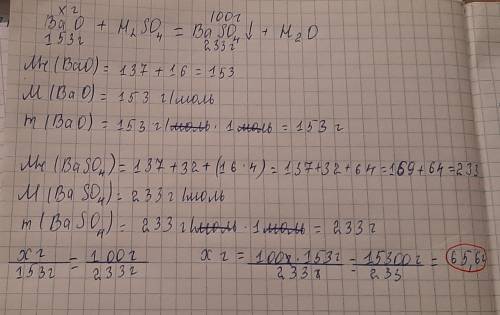 x г 100г
BaO + H₂SO₄ = BaSO₄↓ + H₂O
153г 233г
Mr(BaO) = 137 + 16 = 153
M(BaO) = 153 г/моль
m(BaO) = 153 г/моль · 1моль = 153 г
Mr(BaSO₄) = 137 + 32 + (16 · 4) = 137 + 32 + 64 = 169 + 64 = 233
M(BaSO₄) = 233 г/моль
m(BaSO₄) = 233 г/моль · 1моль = 233г
x г / 153г = 100г / 233г x г = 100г · 153г / 233г = 15300г / 233 = 65,6г